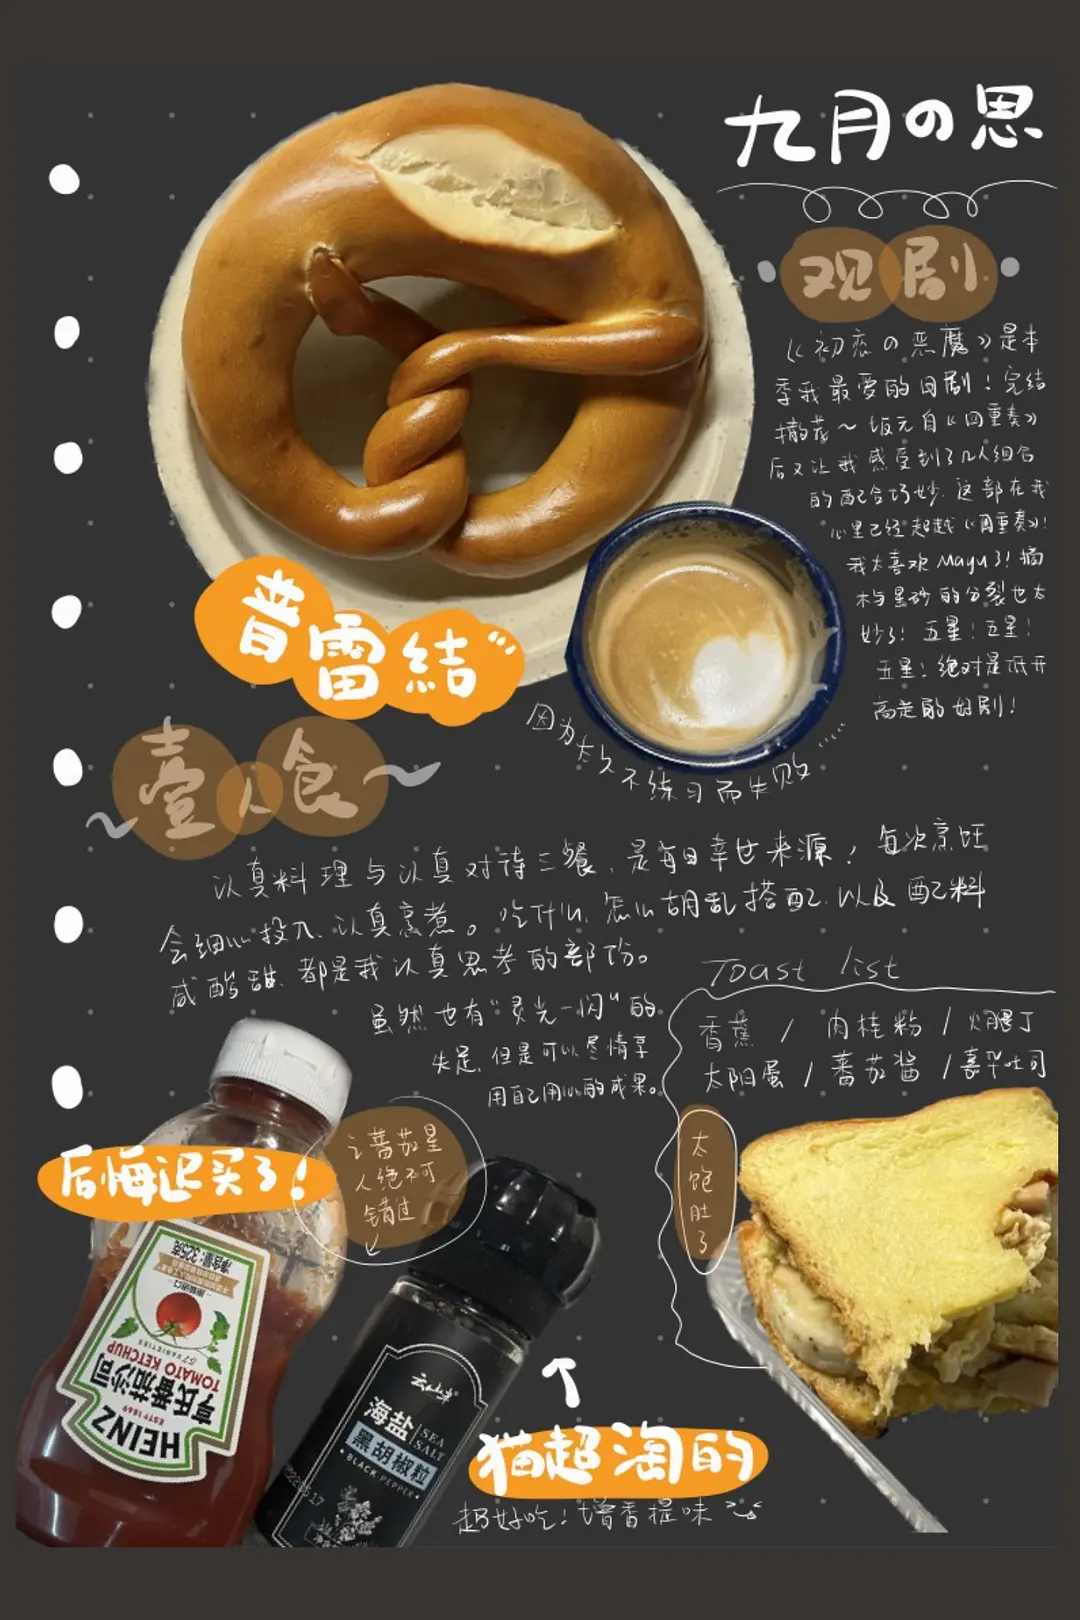 九月の思
观剧
《初恋の恶魔》是本
季我最爱的日剧！完结
撒花～坂元自《四重奏》
后又让我感受到了几人组合
的配合巧妙.这部在我
心里已经超越《四重奏》！
我太喜欢Mayu了！摘
木与星砂的分裂也太
妙了！五星！五星！
五星！绝对是低开
高走的好剧！
普雷结
因为太久不练习而失败……
～壹人食～
认真料理与认真对待三餐、是每日幸世来源！每次烹饪
会细心投入、认真烹煮。吃什么、怎么胡乱搭配、以及配料
咸酸甜、都是我认真思考的部份。
虽然也有"灵光一闪"的
失足、但是可以尽情享
用自己用心的成果。
Toast list
香蕉 / 肉桂粉 / 火腿丁
太阳蛋 / 蕃茄酱 / 嘉华吐司
太
饱
肚
了
后悔迟买了！
蕃茄星
人绝不可
错过
净含量:325克
57 VARIETIES
TOMATO KETCHUP
亨氏番茄沙司
ESTD 1869
HEINZ
海盐 SEA SALT
黑胡椒粒
BLACK PEPPER
猫超淘的
超好吃！增香提味